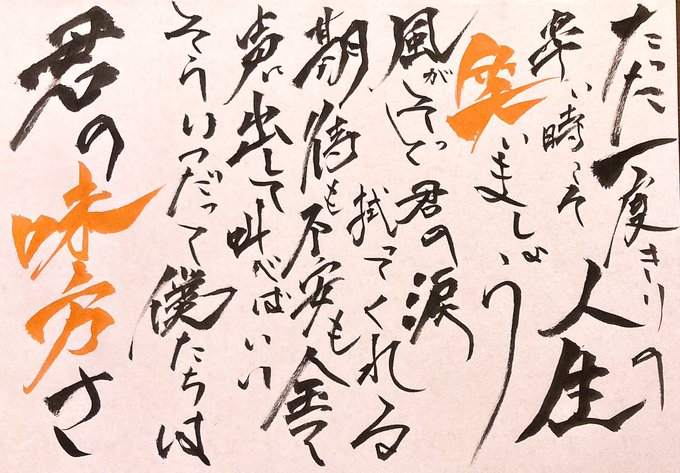 たった一度きりの人生
辛い時こそ
笑いましょう
風がそっと君の涙
拭ってくれる
期待も不安も全て
声に出して叫べばいい
そういつだって僕たちは
君の味方さ